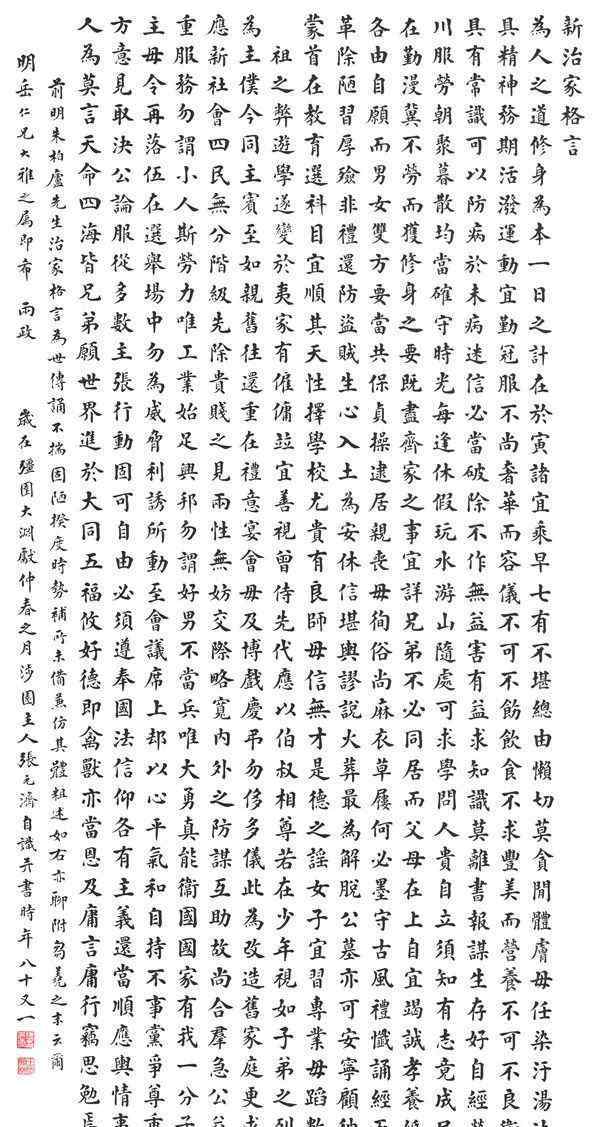 新治家格言
為人之道修身為本一日之計在於寅諸宜乘早七有不堪總由懶切莫貪閒體膚毋任染汙湯
具精神務期活潑運動宜勤冠服不尚奢華而容儀不可不飭飲食不求豐美而營養不可不良
具有常識可以防病於未病迷信必當破除不作無益害有益求知識莫離書報謀生存好自經
川服勞朝聚暮散均當確守時光每逢休假玩水游山隨處可求學問人貴自立須知有志竟成
在勤漫冀不勞而獲修身之要既盡齊家之事宜詳兄弟不必同居而父母在上自宜竭誠孝養
各由自願而男女雙方要當共保貞操逮居親喪毋徇俗尚麻衣草屨何必墨守古風禮懺誦經
革除陋習厚殮非禮還防盜賊生心入土為安休信堪輿謬說火葬最為解脫公墓亦可安寧顧
蒙首在教育選科目宜順其天性擇學校尤貴有良師毋信無才是德之謠女子宜習專業毋蹈
祖之弊遊學遂變於夷家有僱傭竝宜善視曾侍先代應以伯叔相尊若在少年視如子弟之列
為主僕今同主賓至如親舊往還重在禮意宴會毋及博戲慶弔勿侈多儀此為改造舊家庭更
應新社會四民無分階級先除貴賤之見兩性無妨交際略寬內外之防謀互助故尚合羣急公
重服務勿謂小人斯勞力唯工業始足興邦勿謂好男不當兵唯大勇真能衛國國家有我一分子
主毋令再落伍在選舉場中勿為威脅利誘所動至會議席上却以心平氣和自持不事黨爭尊重
方意見取決公論服從多數主張行動固可自由必須遵奉國法信仰各有主義還當順應輿情事
人為莫言天命四海皆兄弟願世界進於大同五福攸好德即禽獸亦當恩及庸言庸行竊思勉焉
前明朱柏廬先生治家格言為世傳誦不揣固陋揆度時勢補所未備兼仿其體粗述如右亦聊附芻蕘之末云爾
明岳仁兄大雅之屬即希 兩政 歲在彊圉大淵獻仲春之月涉園主人張元濟自識并書時年八十又一